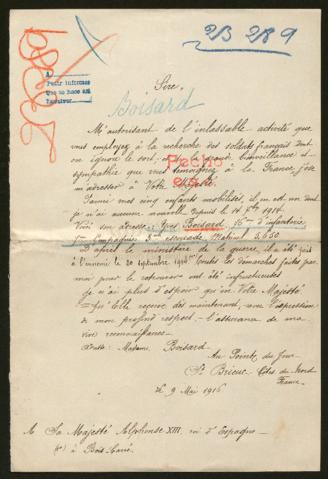 2/3 2/8 9
A
Pedir informes
Sire,
Boisard
M'autorisant de l'inlassable activité que
vous employez à la recherche des soldats français dont
on ignore le sort, bienveillance et
sympathie que vous témoignez à la France, j'ose
m'adresser à Votre Majesté.
J'avais mes cinq enfants mobilisés, il en est un dont
je n'ai aucune nouvelle depuis le 14 7bre 1914.
Pecho
Voici son adresse: Yves Boisard, d'infanterie
compagnie, 3me escouade Matricule 5.650
D'après le ministère de la guerre, il a été fait
à l'ennemi le 20 septembre Toutes les démarches faites par
moi pour le retrouver ont été infructueuses
je n'ai plus d'espoir qu'en Votre Majesté
qu'Elle reçoive dès maintenant, avec l'expression
de mon profond respect, l'assurance de ma
vive reconnaissance.
Madame Boisard
Au Point du Jour
St Brieuc Côtes du Nord
France
le 9 Mai 1916
A Sa Majesté Alphonse XIII roi d'Espagne